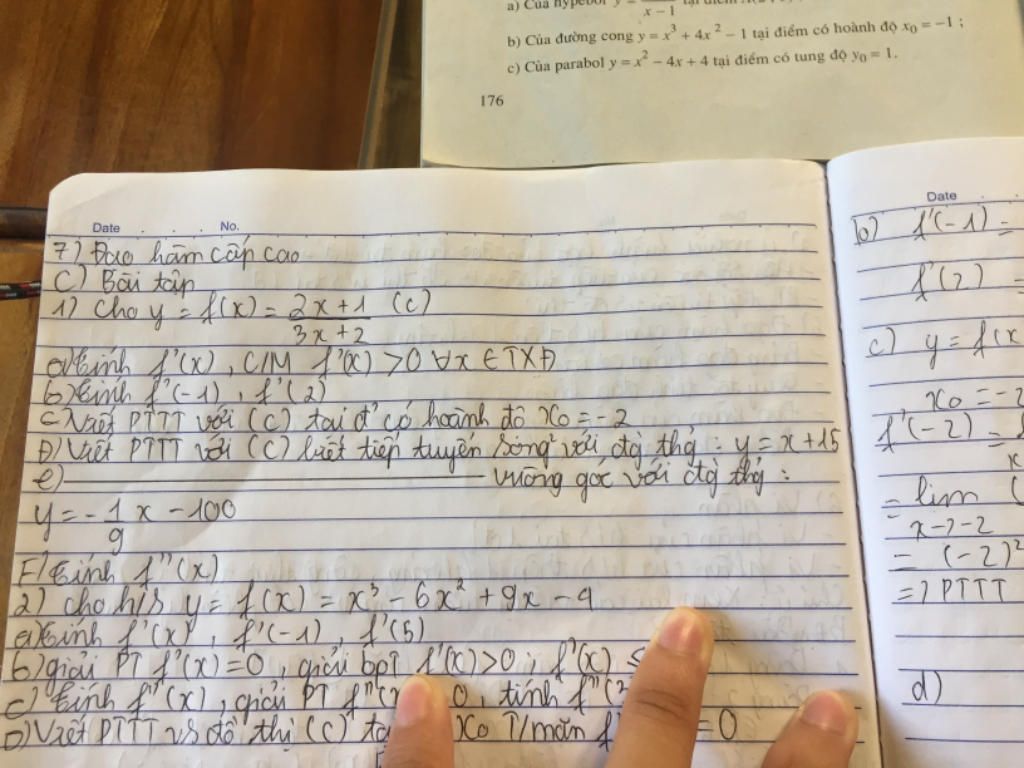 a) Của hypebol y =
x − 1
tại điểm
b) Của đường cong y = x³ + 4x² − 1 tại điểm có hoành độ x₀ = −1 ;
c) Của parabol y = x² − 4x + 4 tại điểm có tung độ y₀ = 1.
176
Date . . . . No.
7) Đạo hàm cấp cao
C) Bài tập
1) Cho y = f(x) = 2x+1 / 3x+2 (C)
a) tính f'(x), C/M f'(x) > 0 ∀x ∈ TXĐ
b) tính f'(-1), f'(2)
c) Viết PTTT với (C) tại đ' có hoành độ x₀ = -2
D) Viết PTTT với (C) biết tiếp tuyến song² với đg thg : y = x + 15
e) ———— vuông góc với đg thg :
y = - 1/9 x - 100
F) tính f''(x)
2) cho h/s y = f(x) = x³ - 6x² + 9x -
a) tính f'(x), f'(-1), f'(5)
b) giải PT f'(x) = 0, giải bpt f'(x) > 0; f'(x) ≤
c) tính f''(x), giải PT f''(x 0, tính f''(2
D) Viết PTTT vs đồ thị (C) x₀ T/mãn f = 0
Date . .
b) f'(-1) =
f'(2) =
c) y = f(x
x₀ = -2
f'(-2) =
x
= lim (
x->-2
= (-2)²
=> PTTT
d)